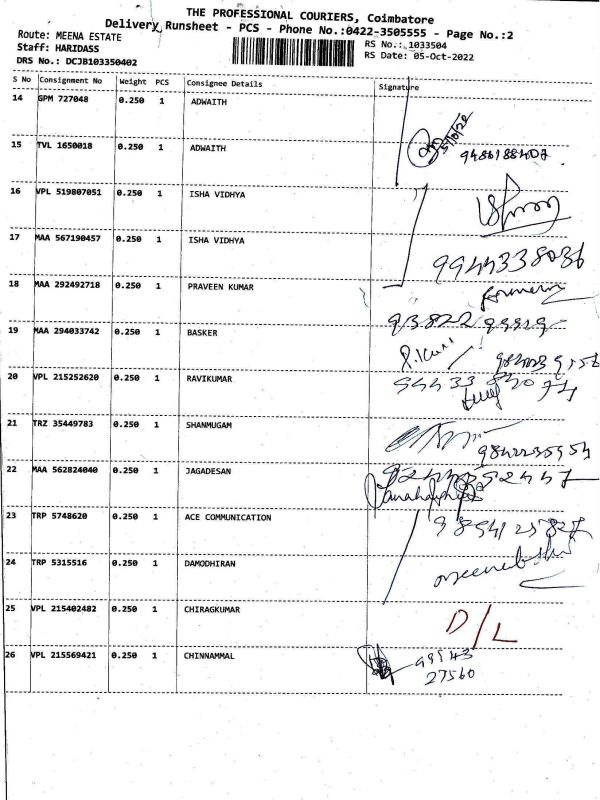 THE PROFESSIONAL COURIERS, Coimbatore
Delivery Runsheet - PCS - Phone No.:0422-3505555 - Page No.:2
Route: MEENA ESTATE
RS No.: 1033504
Staff: HARIDASS
RS Date: 05-Oct-2022
DRS No.: DCJB103350402
S No Consignment No Weight PCS Consignee Details Signature
14 GPM 727048 0.250 1 ADWAITH
15 TVL 1650018 0.250 1 ADWAITH
16 VPL 519807051 0.250 1 ISHA VIDHYA
17 MAA 567190457 0.250 1 ISHA VIDHYA
9944338036
18 MAA 292492718 0.250 1 PRAVEEN KUMAR
19 MAA 294033742 0.250 1 BASKER
20 VPL 215252620 0.250 1 RAVIKUMAR
21 TRZ 35449783 0.250 1 SHANMUGAM
22 MAA 562824040 0.250 1 JAGADESAN
23 TRP 5748620 0.250 1 ACE COMMUNICATION
24 TRP 5315516 0.250 1 DAMODHIRAN
25 VPL 215402482 0.250 1 CHIRAGKUMAR D/L
26 VPL 215569421 0.250 1 CHINNAMMAL
27560